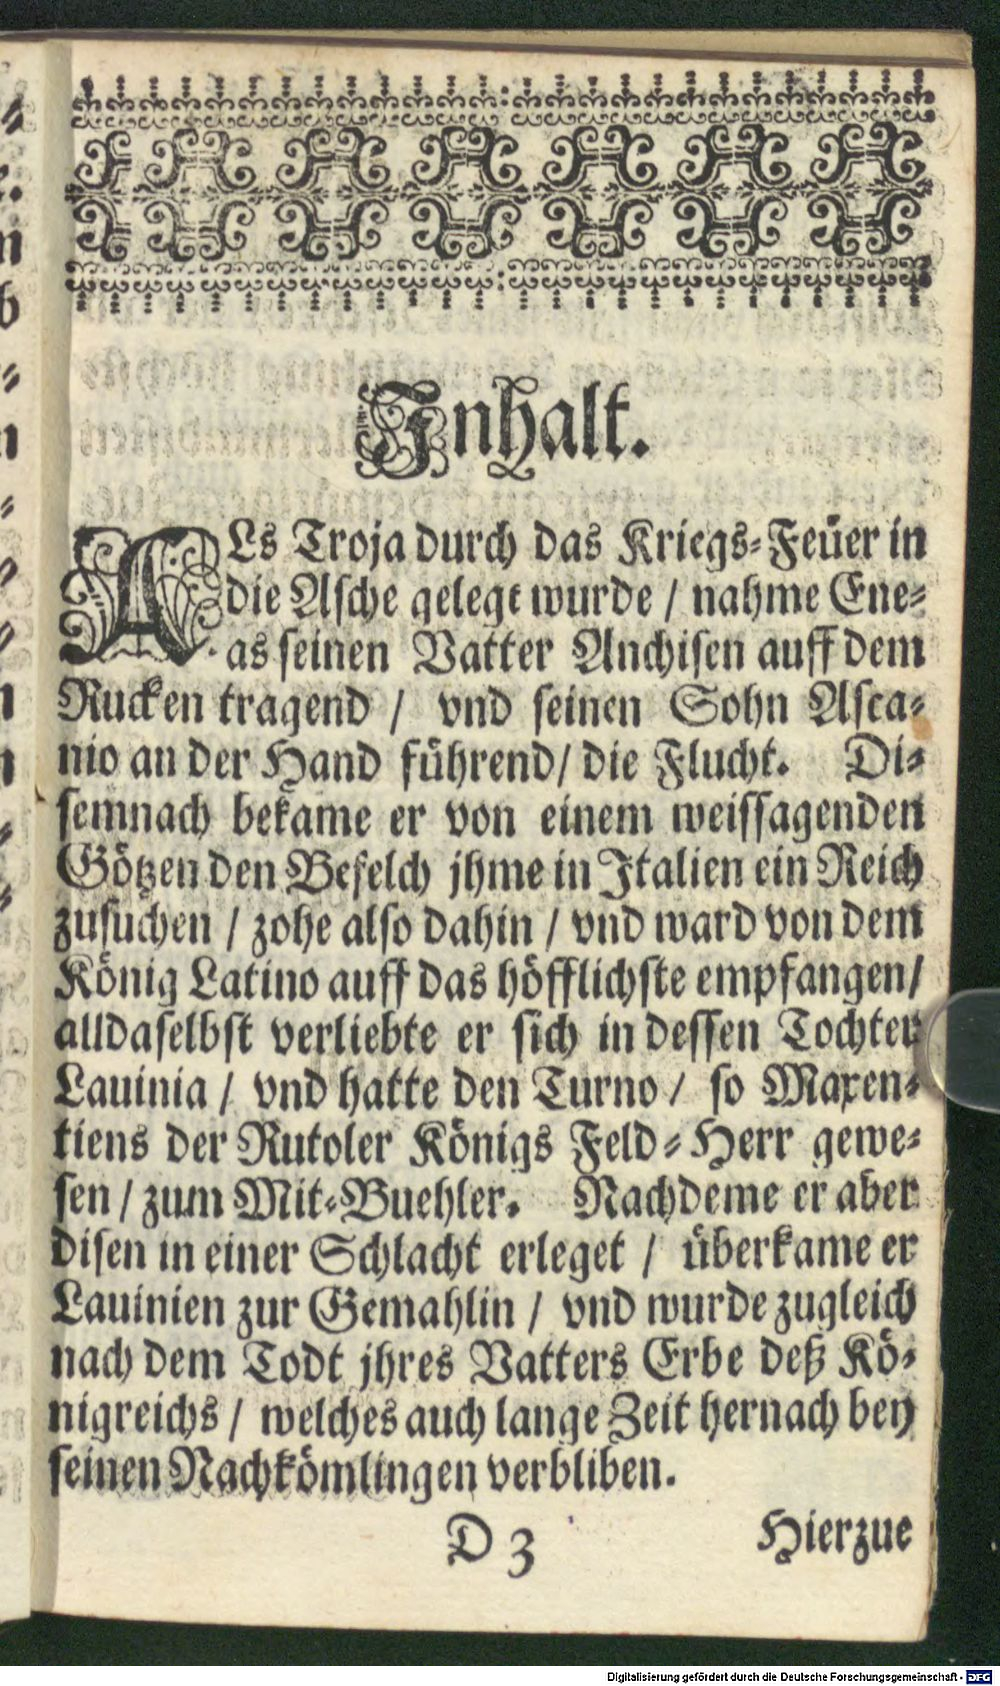 Innhalt.
ALs Troja durch das Kriegs-Feüer in
die Asche gelegt wurde / nahme Ene-
as seinen Vatter Anchisen auff dem
Rucken tragend / vnd seinen Sohn Asca-
nio an der Hand führend / die Flucht. Di-
semnach bekame er von einem weissagenden
Götzen den Befelch jhme in Italien ein Reich
zusuchen / zohe also dahin / vnd ward von dem
König Latino auff das höfflichste empfangen /
alldaselbst verliebte er sich in dessen Tochter
Lauinia / vnd hatte den Turno / so Maxen-
tiens der Rutoler Königs Feld-Herr gewe-
sen / zum Mit-Buehler. Nachdeme er aber
disen in einer Schlacht erleget / überkame er
Lauinien zur Gemahlin / vnd wurde zugleich
nach dem Todt jhres Vatters Erbe deß Kö-
nigreichs / welches auch lange Zeit hernach bey
seinen Nachkömlingen verbliben.
D 3 Hierzue
Digitalisierung gefördert durch die Deutsche Forschungsgemeinschaft - DFG